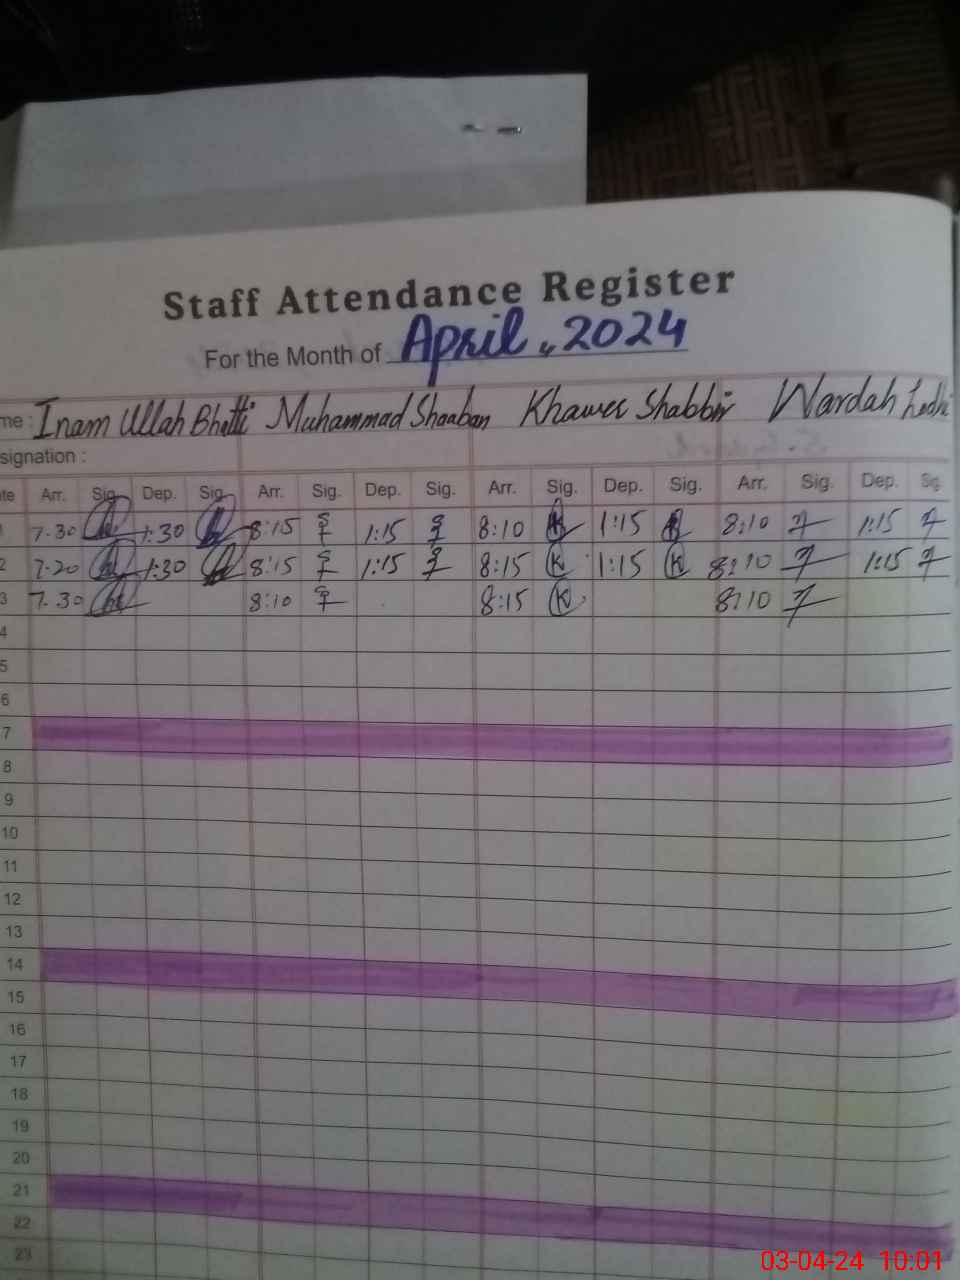 Staff Attendance Register
For the Month of April, 2024
me : Inam Ullah Bhatti Muhammad Shaaban Khawer Shabbir Wardah Lodhi
signation :
te Arr. Sig. Dep. Sig. Arr. Sig. Dep. Sig. Arr. Sig. Dep. Sig. Arr. Sig. Dep. Sig.
1 7.30 1:30 8:15 1:15 8:10 K 1:15 K 8:10 1:15
2 7.20 1:30 8:15 1:15 8:15 K 1:15 K 8:10 1:15
3 7.30 8:10 8:15 K 8:10
4
5
6
7
8
9
10
11
12
13
14
15
16
17
18
19
20
21
22
23
03-04-24 10:01